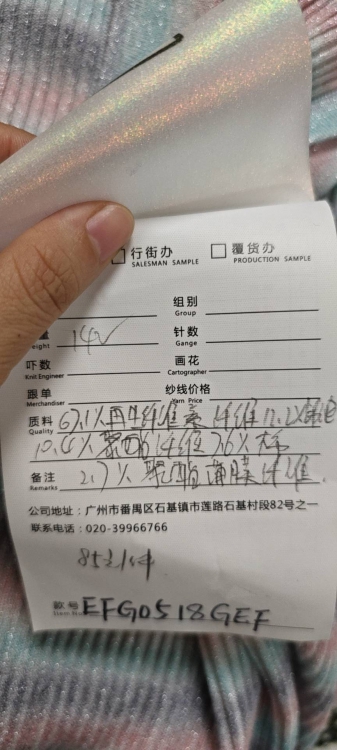 行街办 覆货办
SALESMAN SAMPLE PRODUCTION SAMPLE
组别
Group
针数
eight 14 Gange
吓数 画花
Knit Engineer Cartographer
跟单 纱线价格
Merchandiser Yarn Price
质料 67.1%再生纤维素纤维 17.2%
Quality 10.4% 聚酯纤维 7.6%
备注 2.7% 聚酯薄膜纤维
Remarks
公司地址:广州市番禺区石基镇市莲路石基村段82号之一
联系电话:020-39966766
85元/件
款号 EFG0518GEF